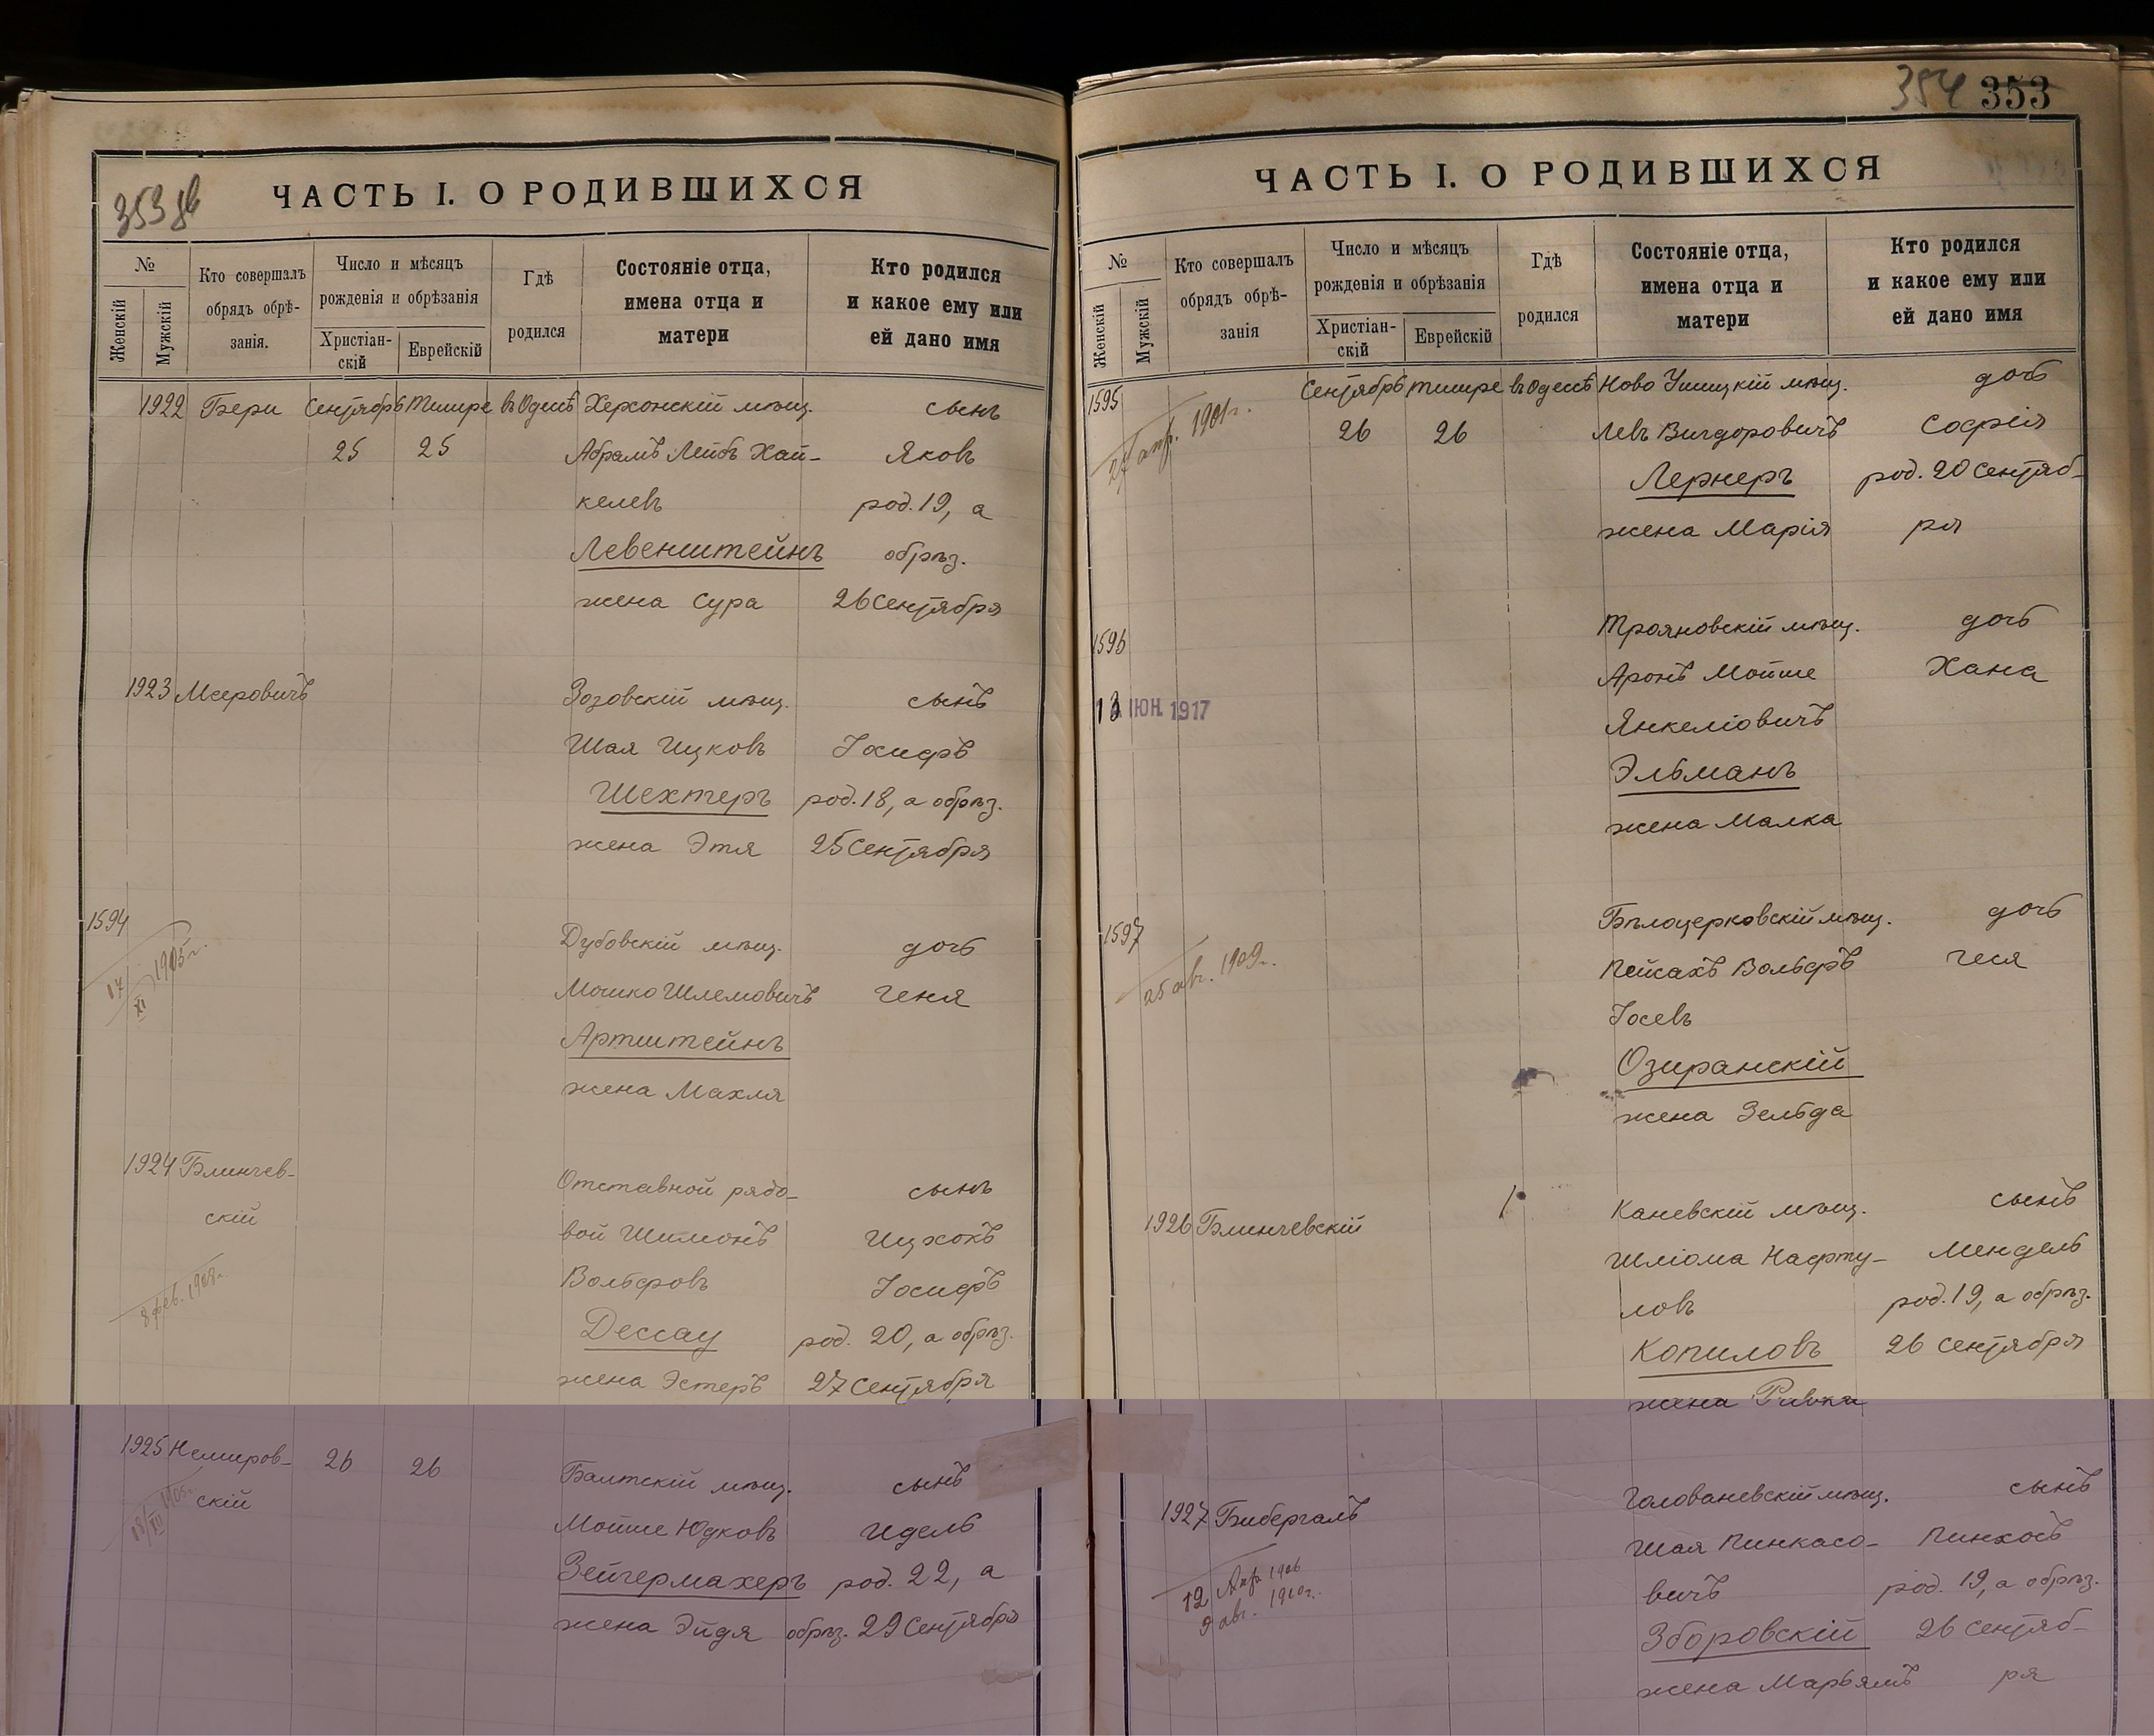 353 об
ЧАСТЬ I. О РОДИВШИХСЯ
№
Женскій
Мужскій
Кто совершалъ
обрядъ обрѣ-
занія.
Число и мѣсяцъ
рожденія и обрѣзанія
Христіан-
скій
Еврейскій
Гдѣ
родился
Состояніе отца,
имена отца и
матери
Кто родился
и какое ему или
ей дано имя
1922 Бери Сентябрь Тишре въ Одессѣ Херсонскій мѣщ. сынъ
25 25 Абрамъ Лейбъ Хай- Яковъ
келевъ род. 19, а
Левенштейнъ обрѣз.
жена Сура 26 Сентября
1923 Мееровичъ Зозовскій мѣщ. сынъ
Шая Ицковъ Іосифъ
Шехтеръ род. 18, а обрѣз.
жена Этя 25 Сентября
1594 Дубовскій мѣщ. дочь
17/XI 1905 г. Мошко Шлемовичъ Геня
Артштейнъ
жена Махля
1924 Блинчев- Отставной рядо- сынъ
скій вой Шимонъ Ицхокъ
8 фев. 1908 г. Вольфовъ Іосифъ
Дессау род. 20, а обрѣз.
жена Эстеръ 27 Сентября
1925 Немиров- 26 26 Балтскій мѣщ. сынъ
скій Мойше Юдковъ Идель
18/XII 1905 г. Зейгермахеръ род. 22, а
жена Эйдя обрѣз. 29 Сентября
354 353
ЧАСТЬ I. О РОДИВШИХСЯ
№
Женскій
Мужскій
Кто совершалъ
обрядъ обрѣ-
занія
Число и мѣсяцъ
рожденія и обрѣзанія
Христіан-
скій
Еврейскій
Гдѣ
родился
Состояніе отца,
имена отца и
матери
Кто родился
и какое ему или
ей дано имя
1595 Сентябрь Тишре въ Одессѣ Ново Ушицкій мѣщ. дочь
27 апр. 1901 г. 26 26 Левъ Вигдоровичъ Софія
Лернеръ род. 20 Сентяб-
жена Марія ря
1596 Трояновскій мѣщ. дочь
13 ІЮН. 1917 Аронъ Мойше Хана
Янкеліовичъ
Эльманъ
жена Малка
1597 Бѣлоцерковскій мѣщ. дочь
25 авг. 1909 г. Пейсахъ Вольфъ Геся
Іосевъ
Озиранскій
жена Зельда
1926 Блинчевскій Каневскій мѣщ. сынъ
Шліома Нафту- Мендель
ловъ род. 19, а обрѣз.
Копиловъ 26 Сентября
жена Ривка
1927 Бибергалъ Голованевскій мѣщ. сынъ
Шая Пинкасо- Пинхосъ
12 Апр. 1906 вичъ род. 19, а обрѣз.
9 авг. 1910 г. Зборовскій 26 Сентяб-
жена Марьямъ ря